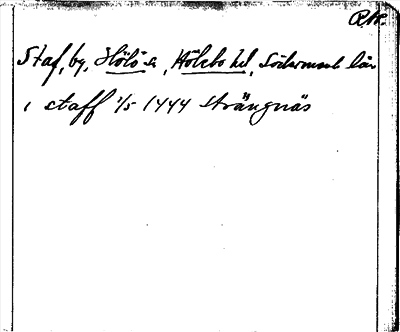 R.A.
Staf, by, Hölö sn, Hölebo hd, Söderman. län
i staff 1/5 1444 Strängnäs